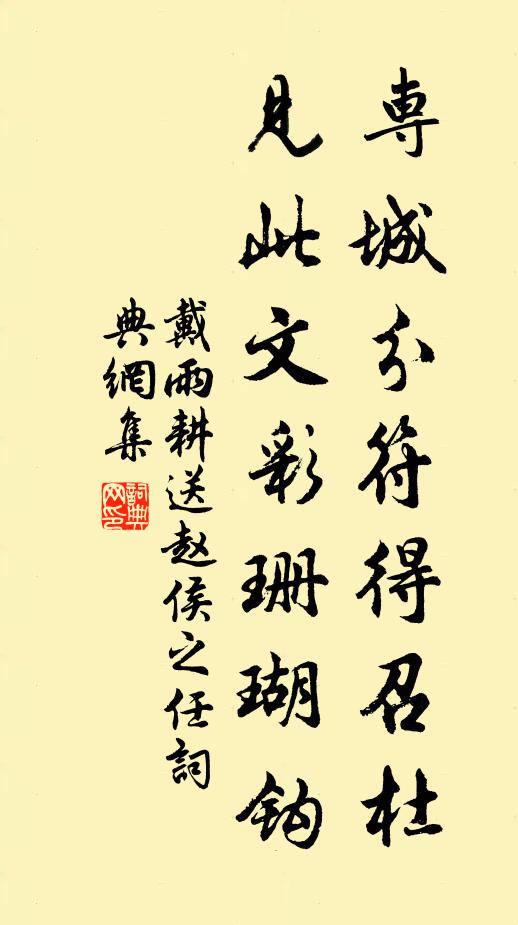 專城分符得召杜
見此文彩珊瑚鈎
戴雨耕送赵侯之任詞
典網集
詞典
网印